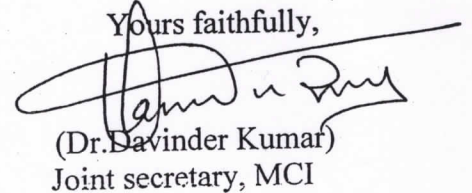 Yours faithfully,
(Dr.Davinder Kumar)
Joint secretary, MCI